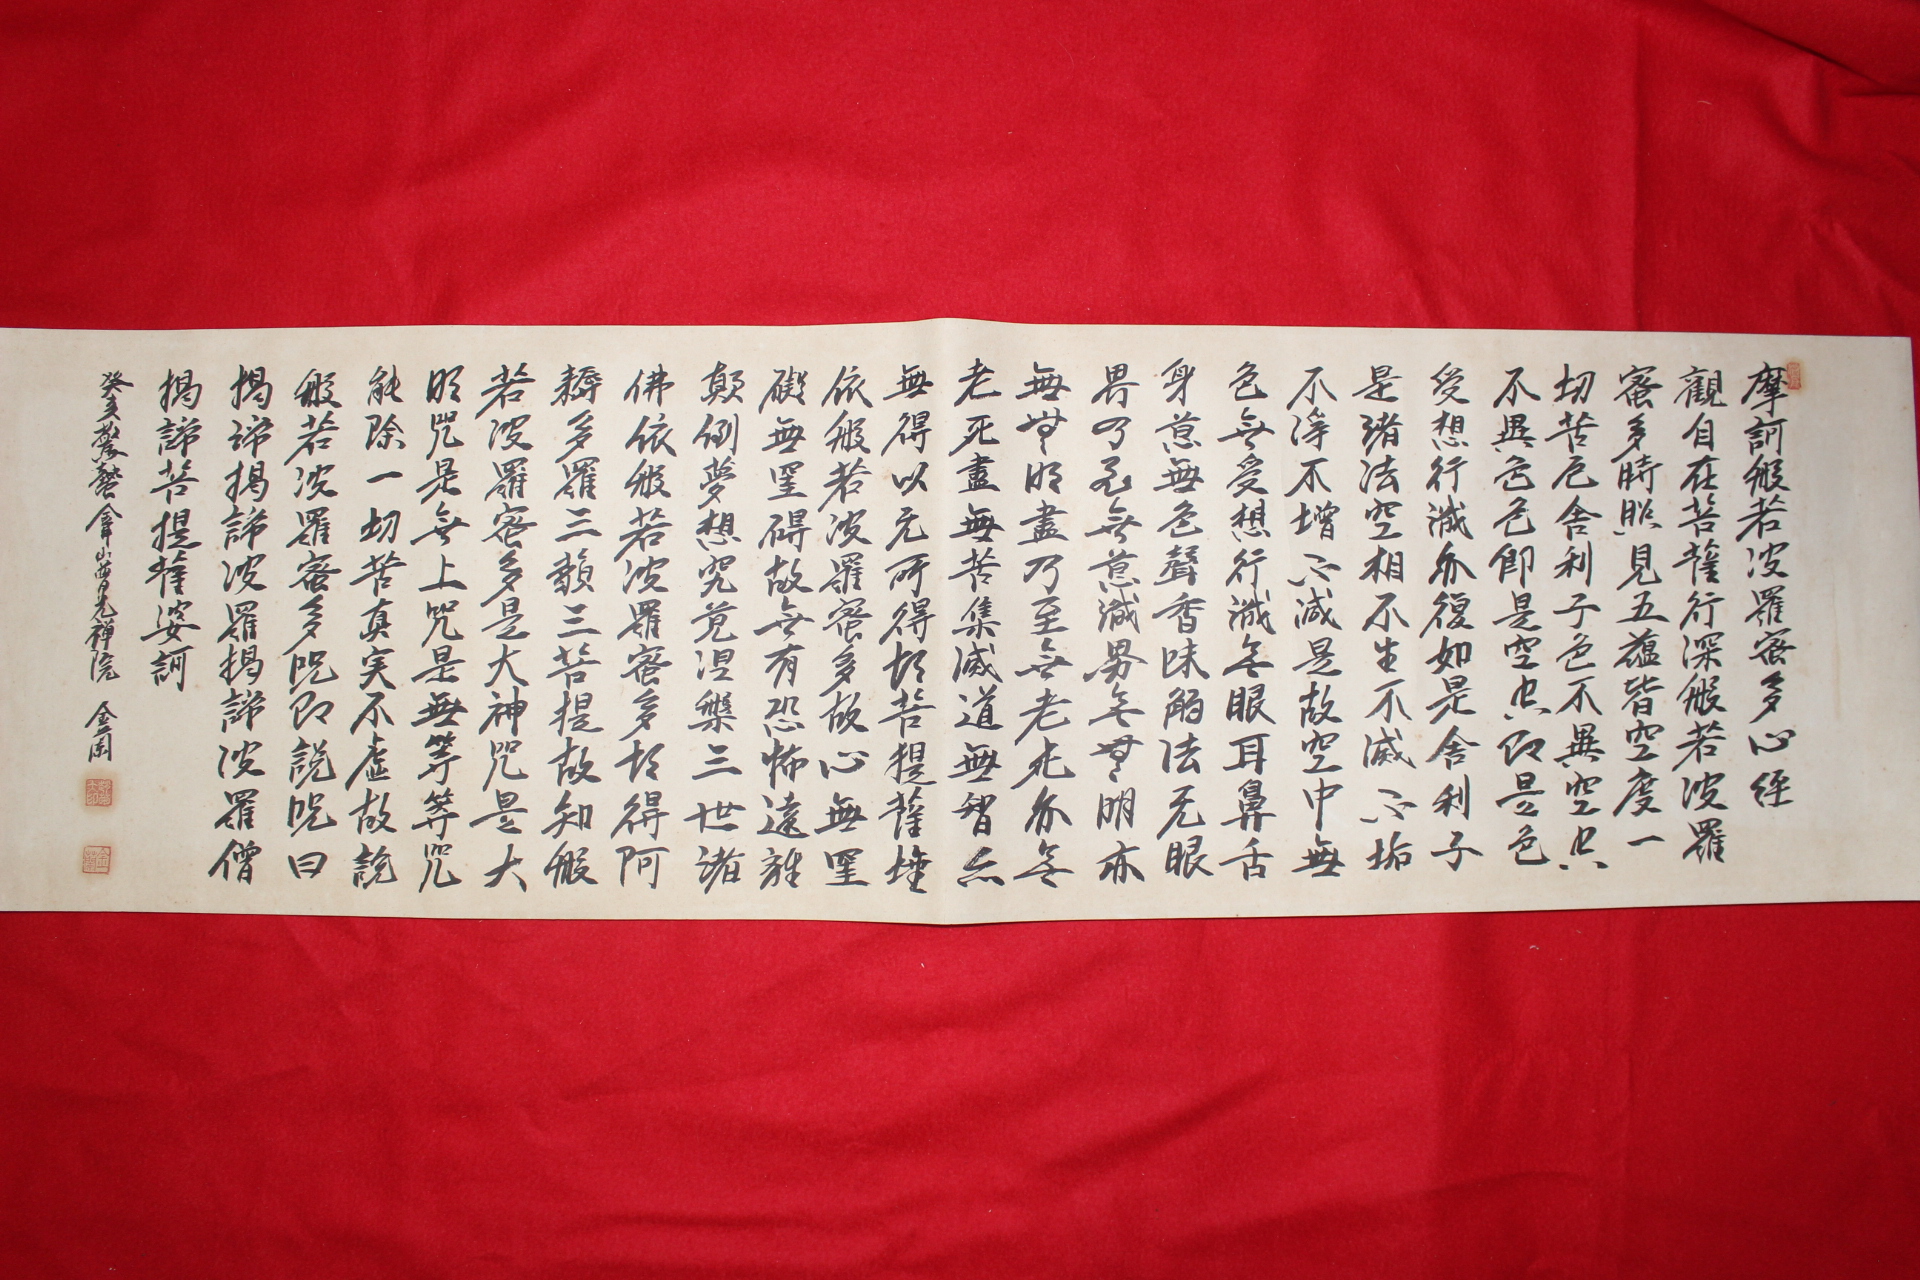 摩訶般若波羅蜜多心経
觀自在菩薩行深般若波羅
蜜多時照見五蘊皆空度一
切苦厄舎利子色不異空空
不異色色即是空空即是色
受想行識亦復如是舎利子
是諸法空相不生不滅不垢
不淨不増不減是故空中無
色無受想行識無眼耳鼻舌
身意無色聲香味觸法无眼
界乃至無意識界無無明亦
無無明盡乃至無老死亦無
老死盡無苦集滅道無智亦
無得以无所得故菩提薩埵
依般若波羅蜜多故心無罣
礙無罣碍故無有恐怖遠離
顛倒夢想究竟涅槃三世諸
佛依般若波羅蜜多故得阿
耨多羅三藐三菩提故知般
若波羅蜜多是大神咒是大
明咒是無上咒是無等等咒
能除一切苦真実不虚故説
般若波羅蜜多呪即説呪曰
揭諦揭諦波羅揭諦波羅僧
揭諦菩提薩婆訶
癸亥驚蟄 山 禅院 金園